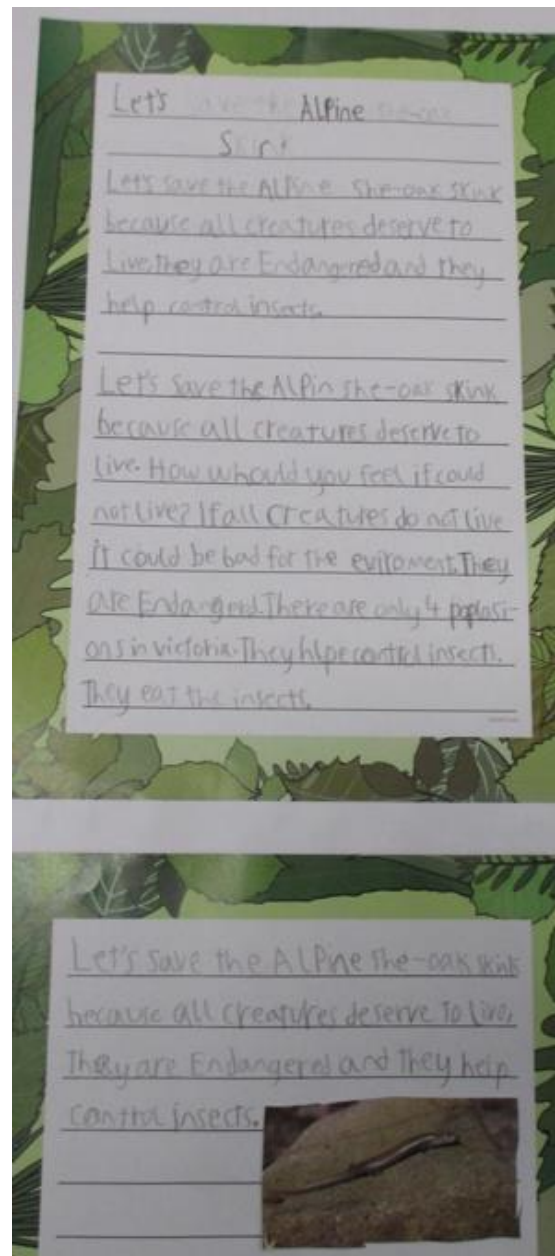 Let's save the Alpine she-oak
Skink
Let's save the Alpine she-oak skink
because all creatures deserve to
live, they are Endangered and they
help control insects.
Let's save the Alpin she-oak skink
because all creatures deserve to
live. How whould you feel if could
not live? If all creatures do not live
it could be bad for the eviroment. They
are Endangerd. There are only 4 poplasi-
ons in victoria. They hlpe control insects.
They eat the insects.
Let's save the Alpine she-oak skink
because all creatures deserve to live,
They are Endangered and They help
control insects.